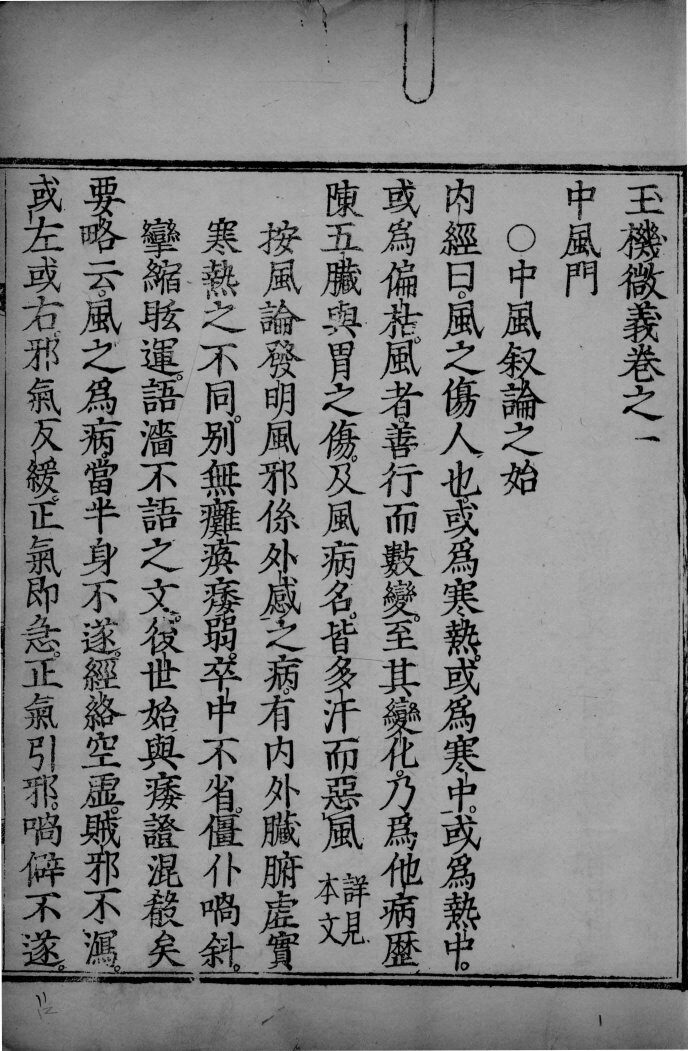 玉機微義卷之一
中風門
○中風叙論之始
内經曰。風之傷人也。或爲寒熱。或爲寒中。或爲熱中。
或爲偏枯。風者。善行而數變。至其變化。乃爲他病。歷
陳五臟與胃之傷。及風病名。皆多汗而惡風詳見本文
按風論發明風邪係外感之病。有内外臟腑虛實
寒熱之不同。别無癱瘓痿弱。卒中不省。僵仆喎斜。
攣縮眩運。語濇不語之文。後世始與痿證混殽矣
要略云。風之爲病。當半身不遂。經絡空虛。賊邪不瀉。
或左或右。邪氣反緩。正氣即急。正氣引邪。喎僻不遂。